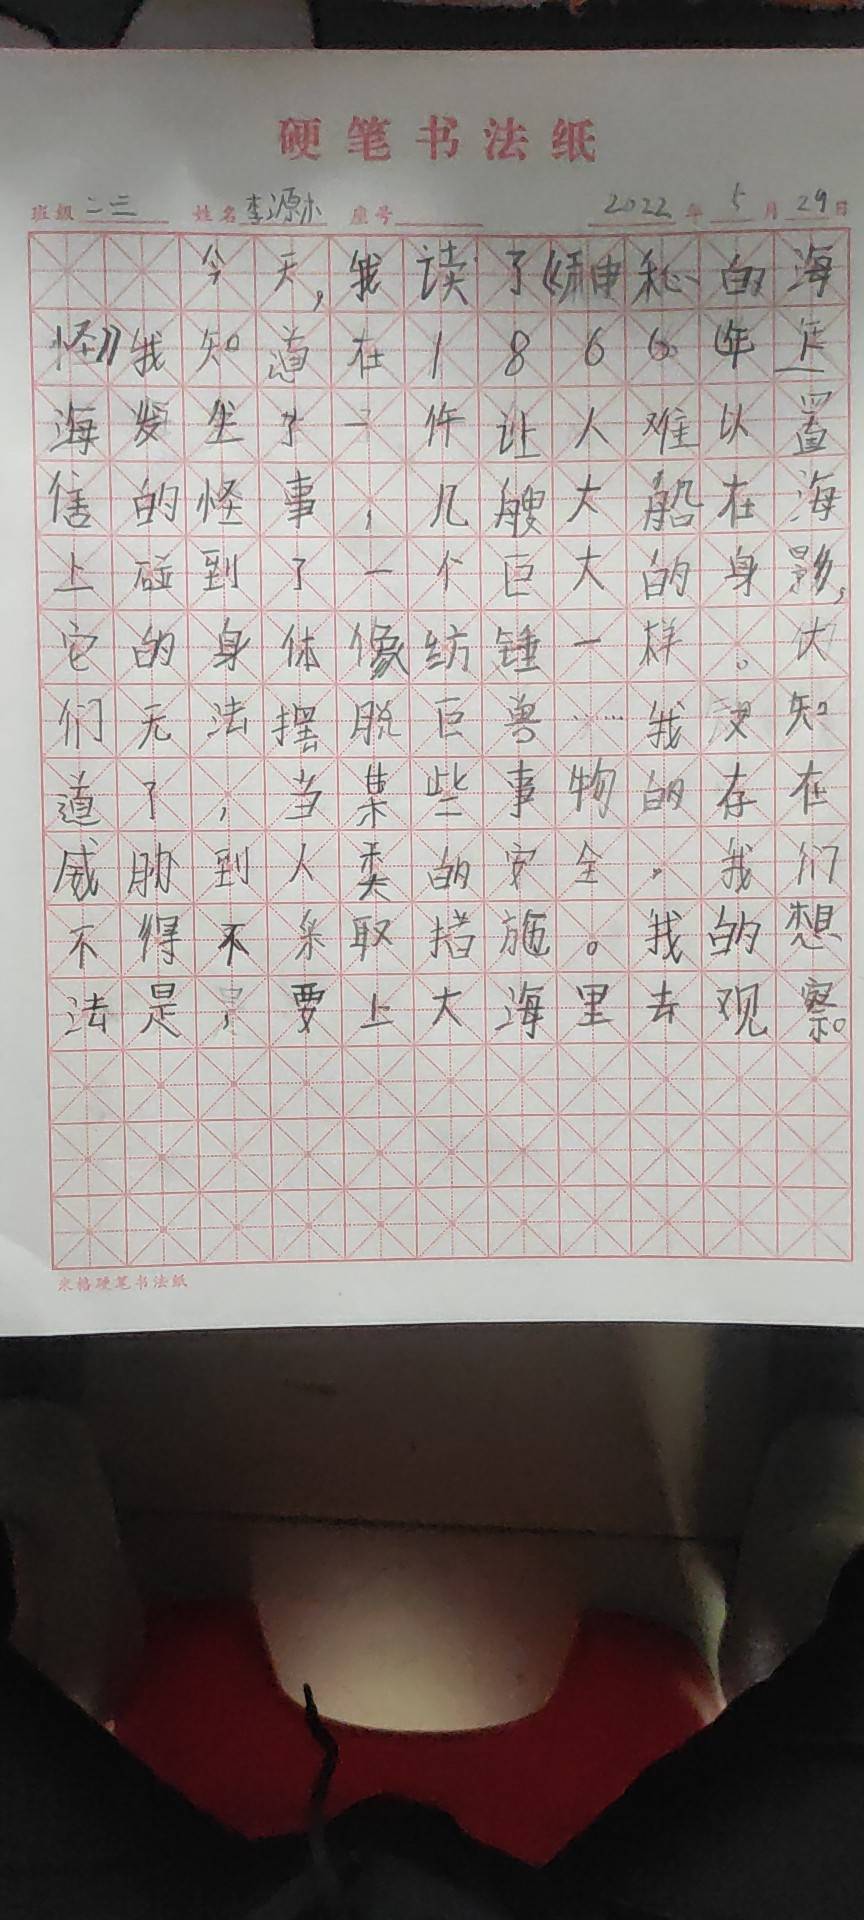 硬笔书法纸
班级 二三 姓名 李源木 座号 2022 年 5 月 29 日
今天,我读了《神秘的海
怪》我知道在1866年
海发生了一件让人难以置
信的怪事,几艘大船在海
上碰到了一个巨大的身影,
它的身体像纺锤一样。
们无法摆脱巨兽……我 知
道了,当某些事物的存在
威胁到人类的安全。我们
不得不采取措施。我的想
法是,要上大海里去观察。
米格硬笔书法纸